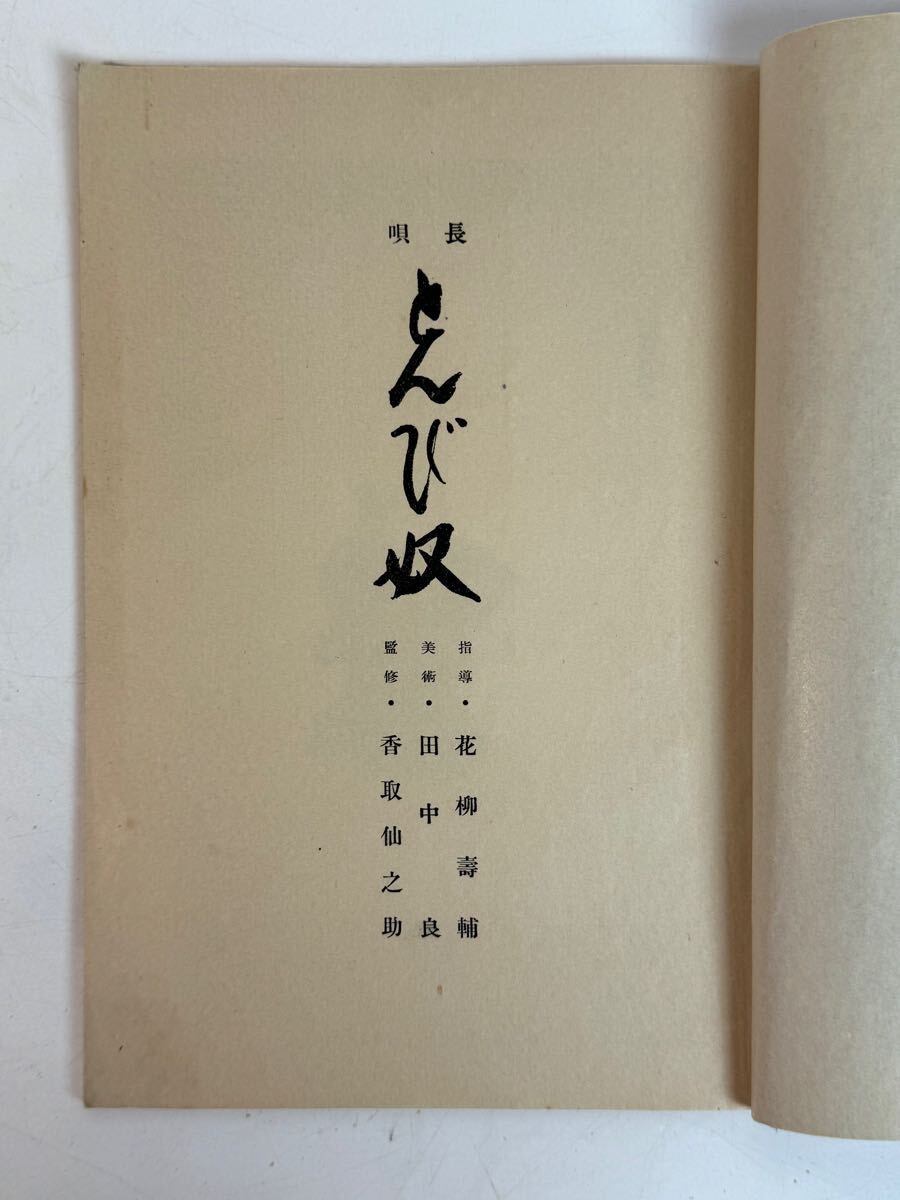 長唄
とんび奴
指導・花柳壽輔
美術・田中良
監修・香取仙之助